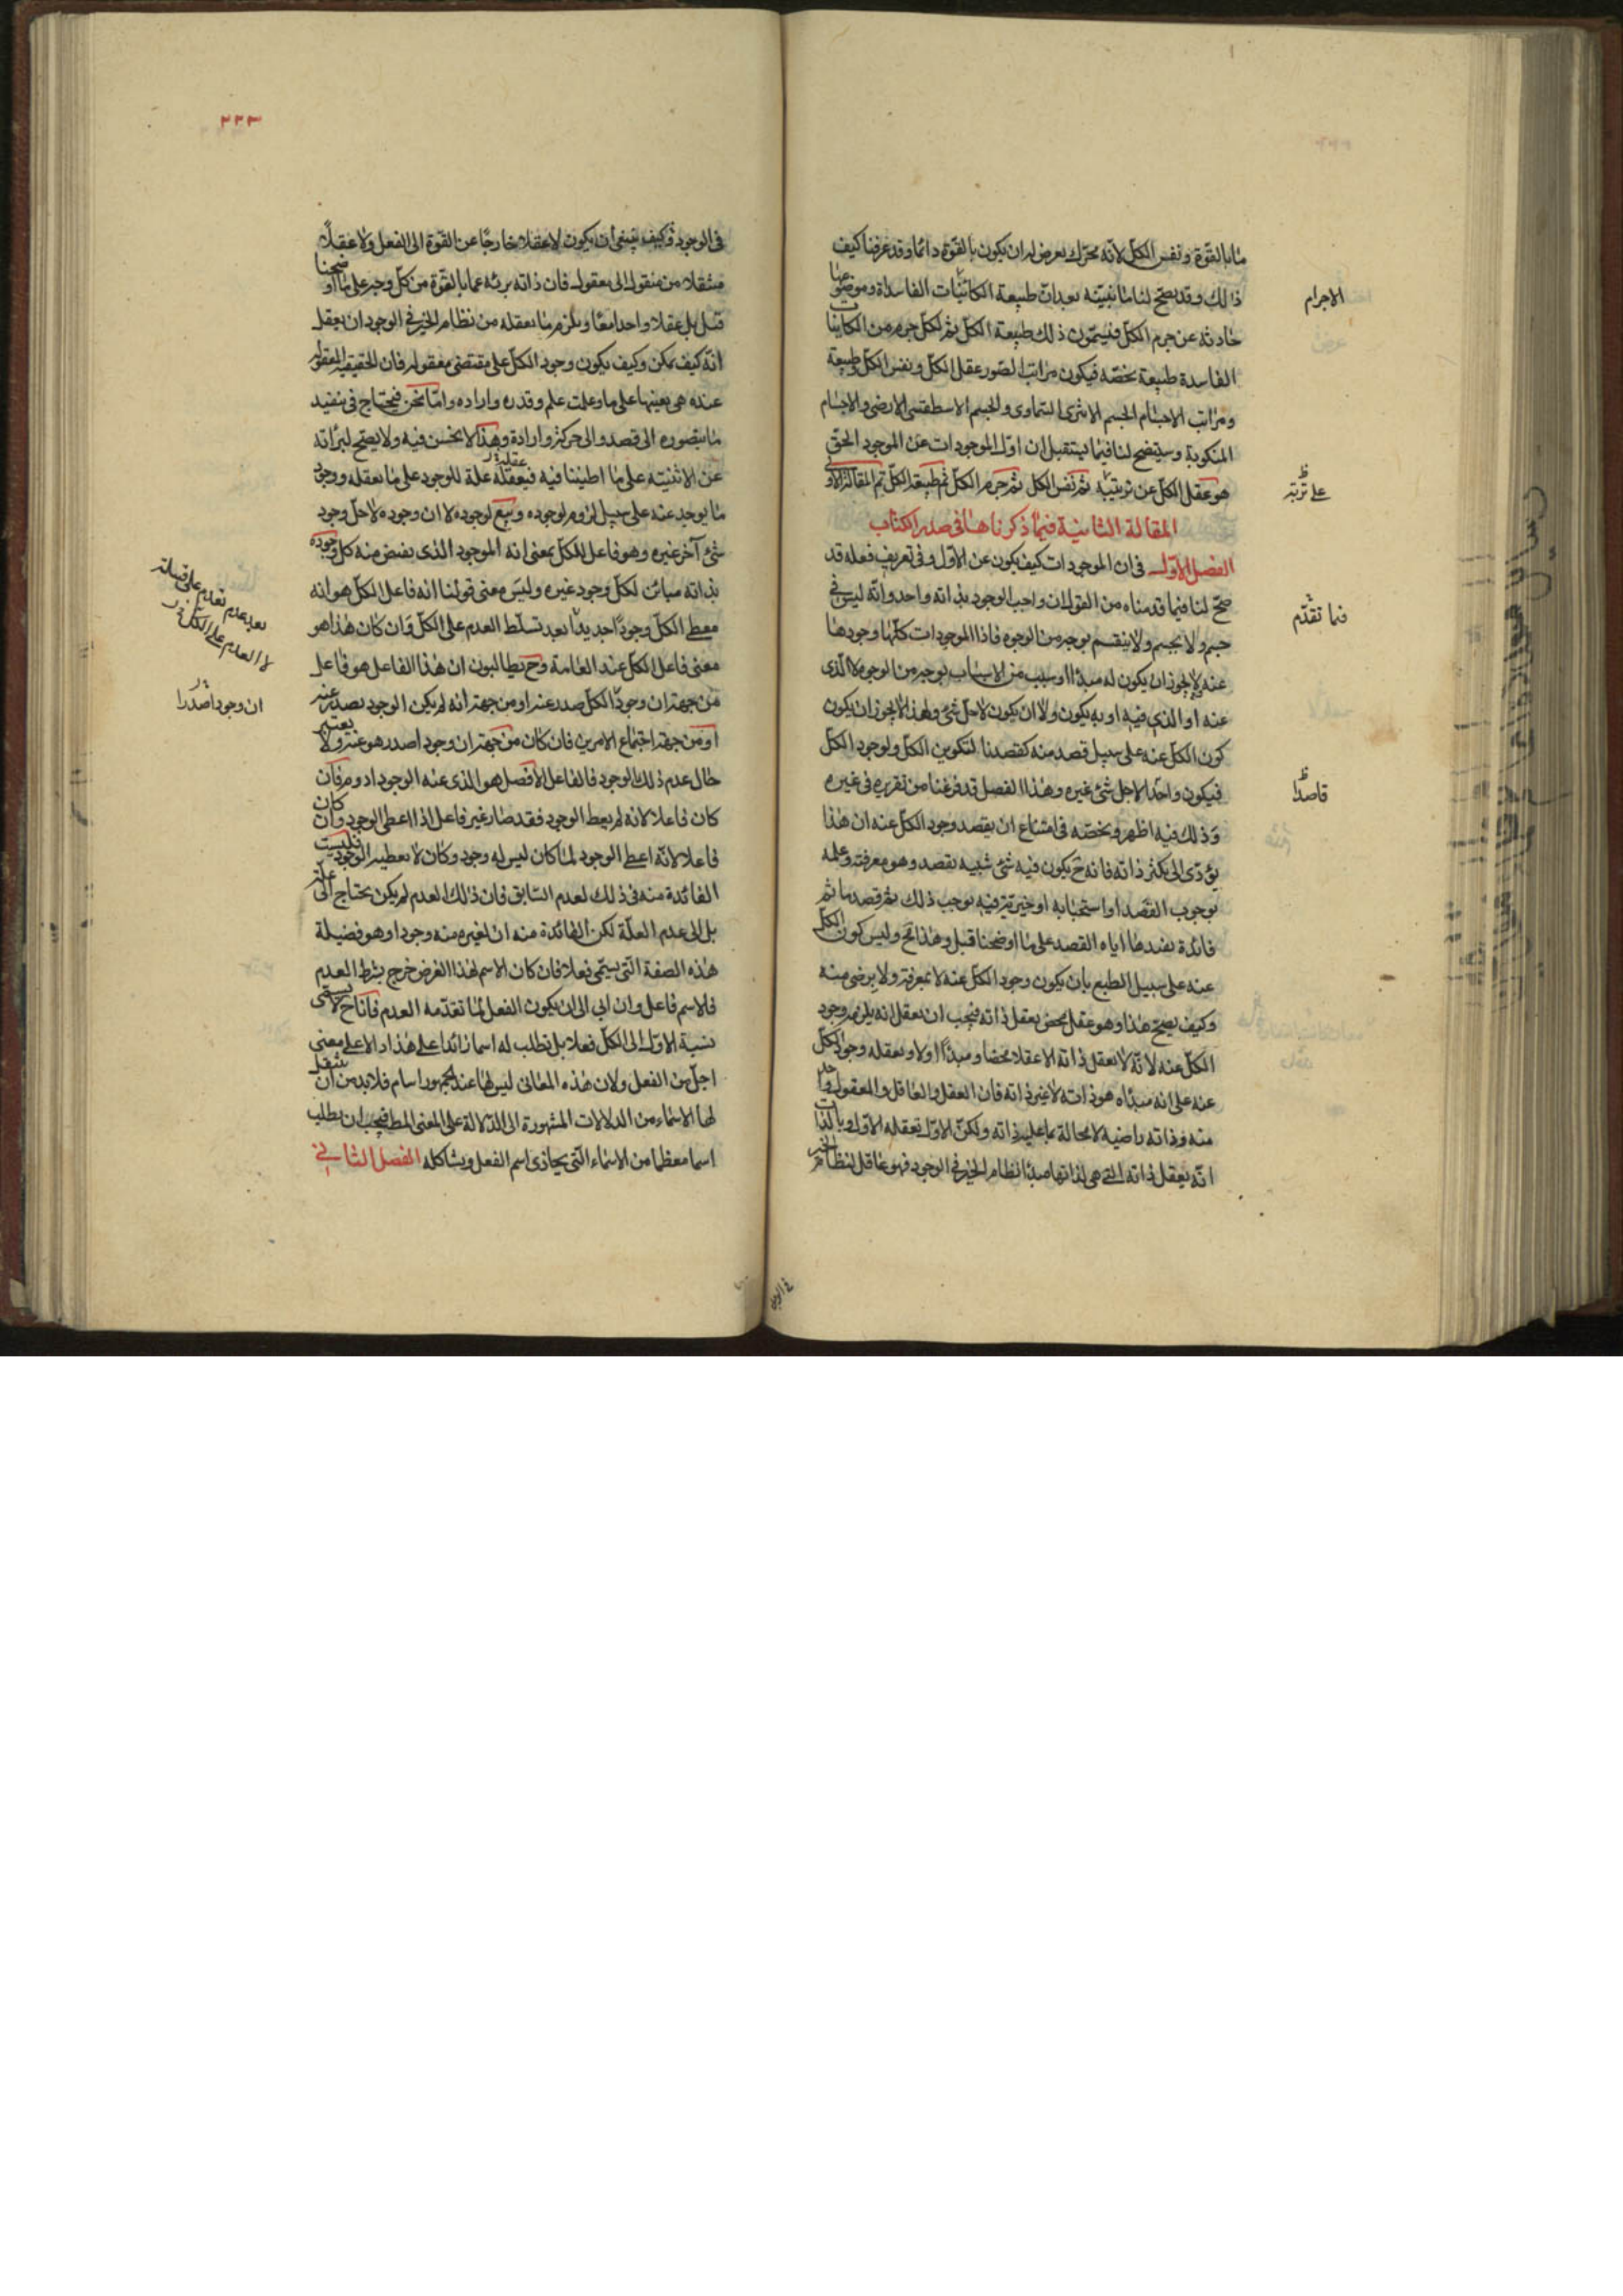 مابالقوّة ونفس الكلّ لانّه محرّك يعرض له ان يكون بالقوّة دائما وقد عرفنا كيف
ذالك وقد يصحّ لنا ما نبيّنه بعد انّ طبيعة الكائنات الفاسدة وموضوعها
حادثه عن جرم الكلّ فيسمّون ذلك طبيعة الكلّ ثمّ لكلّ جرم من الكاينات
الفاسدة طبيعة يخصّه فيكون مراتب الصّور عقل الكلّ ونفس الكلّ وطبيعة
ومراتب الاجسام الجسم الاثرى السّماوى والجسم الاسطقسى الارضى والاجسام
المتكونة وسيتضح لنا فيما يستقبل ان اوّل الموجودات عن الموجود الحقّ
هو عقل الكلّ عن ترتيبه ثمّ نفس الكل ثمّ جرم الكلّ ثمّ طبيعة الكلّ تمّ المقالة الاولى
المقالة الثانية فيما ذكرنا هنا فى صدر الكتاب
الفصل الاوّل فى ان الموجودات كيف يكون عن الاوّل وفى تعريف فعله قد
صحّ لنا فيما قدمناه من القول ان واجب الوجود بذاته واحد وانّه ليس فى
جسم ولا بجسم ولا ينقسم بوجه من الوجوه فاذا الموجودات كلّها وجودها
عنه ولا يجوز ان يكون له مبدأ او سبب من الاسباب بوجه من الوجوه لا الّذى
عنه او الذى فيه او به يكون ولا ان يكون لاجل شئ ولهذا لا يجوز ان يكون
كون الكلّ عنه على سبيل قصد منه كقصدنا لتكوين الكلّ ولوجود الكلّ
فيكون واحدا لاجل شئ غيره وهذا الفصل قد فرغنا من تقريره فى غيره
وذلك فيه اظهر ويخصّه فى امتناع ان يقصد وجود الكلّ عنه ان هذا
يؤدّى الى تكثر ذاته فانه ح يكون فيه شئ شبيه بقصد وهو معرفته وعلمه
بوجوب القصد او استحبابه او خيريّة فيه يوجب ذلك ثمّ قصد ما ثم
فائدة يفيدها اياه القصد على ما اوضحنا قبل وهذا مح وليس كون الكلّ
عنه على سبيل الطبع بان يكون وجود الكلّ عنه لا بمعرفة ولا برضى منه
وكيف يصحّ هذا وهو عقل محض يعقل ذاته فيجب ان يعقل انه يلزمه وجود
الكلّ عنه لانّه لا يعقل ذاته الا عقلا محضا ومبدأ اولا ويعقله وجود الكلّ
عنه على انه مبدأه هو ذاته لا غير ذاته فان العقل والعاقل والمعقول واحد
منه وذاته راضيه لا محالة بما عليه ذاته ولكنّ الاوّل تعقله الاوّل وبالذات
انّه يعقل ذاته التى هى لذاتها مبدأ لنظام الخير فى الوجود فهو عاقل لنظام الخير
الاجرام
على ترتيبه
فيما تقدّم
قاصدا
فى الوجود
٢٣٣
فى الوجود وكيف ينبغى ان يكون لا عقلا خارجا عن القوّة الى الفعل ولا عقلا
متنقلا من معقول الى معقول فان ذاته بريئه عما بالقوّة من كلّ وجه على ما اوضحنا
قبل بل عقلا واحدا معا ويلزم ما يعقله من نظام الخير فى الوجود ان يعقل
انّه كيف يمكن وكيف يكون وجود الكلّ على مقتضى معقوله فان الحقيقة المعقوله
عنده هى بعينها على ما وعلمت علم وقدره واراده وامّا نحن فنحتاج فى تنفيذ
ما نتصوره الى قصد والى حركة وارادة وهذا لا يحسن فيه ولا يصحّ لبرائه
عن الاثنينيّه على ما اطنبنا فيه فتعقّله علة للوجود على ما يعقله ووجود
ما يوجد عنه على سبيل لزوم لوجوده وتبع لوجوده لا ان وجوده لاجل وجود
شئ آخر غيره وهو فاعل الكلّ بمعنى انه الموجود الذى يفيض منه كل وجوده
بذاته مباين لكلّ وجود غيره وليس معنى قولنا انه فاعل الكلّ هو انه
معطى الكلّ وجودا جديدا بعد تسلّط العدم على الكلّ وان كان هذا هو
معنى فاعل الكلّ عند العامة وح يطالبون ان هذا الفاعل هو فاعل
من جهة ان وجود الكلّ صدر عنه او من جهة انه لم يكن الوجود يصدر عنه
او من جهة اجتماع الامرين فان كان من جهة ان وجودا صدر هو عنه ولا يعتبر
حال عدم ذلك الوجود فالفاعل الافضل هو الذى عنه الوجود ادوم فان
كان فاعلا لانه لم يعط الوجود فقد صار غير فاعل اذا اعطى الوجود وان كان
فاعلا لانّه اعطى الوجود لما كان ليس له وجود وكان لا يعطيه الوجود فليست
الفائدة منه فى ذلك لعدم السّابق فان ذلك العدم لم يكن يحتاج الى علة
بل الى عدم العلّة لكن الفائدة منه ان لغيره منه وجودا وهو فضيلة
هذه الصفة الّتى يسمّى فعلا فان كان الاسم لهذا الغرض خرج بشرط العدم
فلاسم فاعل وان ابى الى ان يكون الفعل لما تقدّمه العدم فانا ح لا يسمّى
نسبة الاوّل الى الكلّ فعلا بل نطلب له اسما زائدا على هذا دالا على معنى
اجلّ من الفعل ولان هذه المعانى ليس لها عند الجمهور اسام فلا بد من ان ننقل
لها الاسماء من الدلالات المشهورة الى الدّلالة على المعنى المط فيجب ان يطلب
اسما معظما من الاسماء الّتى يحاذى اسم الفعل ويشاكله الفصل الثانى
عقليّة
لا العدم على الكل
ان وجودا صدرا